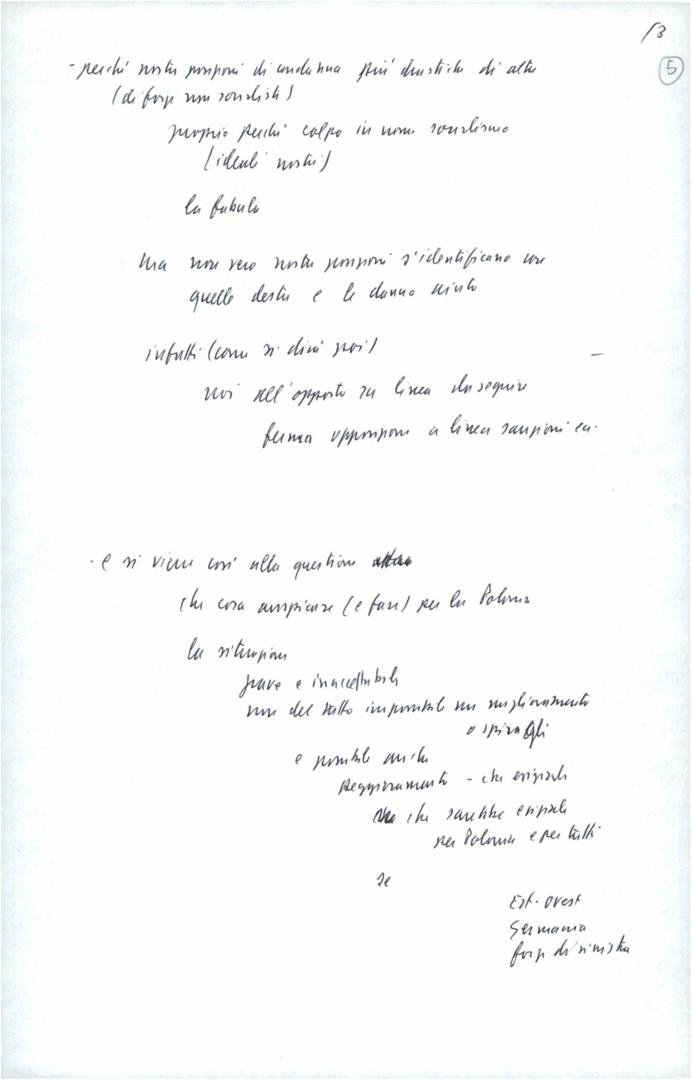 13
5
- perché nostre posizioni di condanna più drastiche di altre
(di forze non socialiste)
proprio perché colpo in nome socialismo
(ideali nostri)
la fabula
ma non vero nostre posizioni s'identificano con
quelle destre e le danno aiuto
infatti (come si dirà poi)
noi all'opposto su linea da seguire
ferma opposizione a linea sanzioni ec.
- e si viene così alla questione
che cosa auspicare (e fare) per la Polonia
la situazione
grave e inaccettabile
non del tutto impossibile un miglioramento
o spiragli
è possibile anche
peggioramento - che
che sarebbe
per Polonia e per tutti
se
Est-Ovest
Germania
forze di sinistra